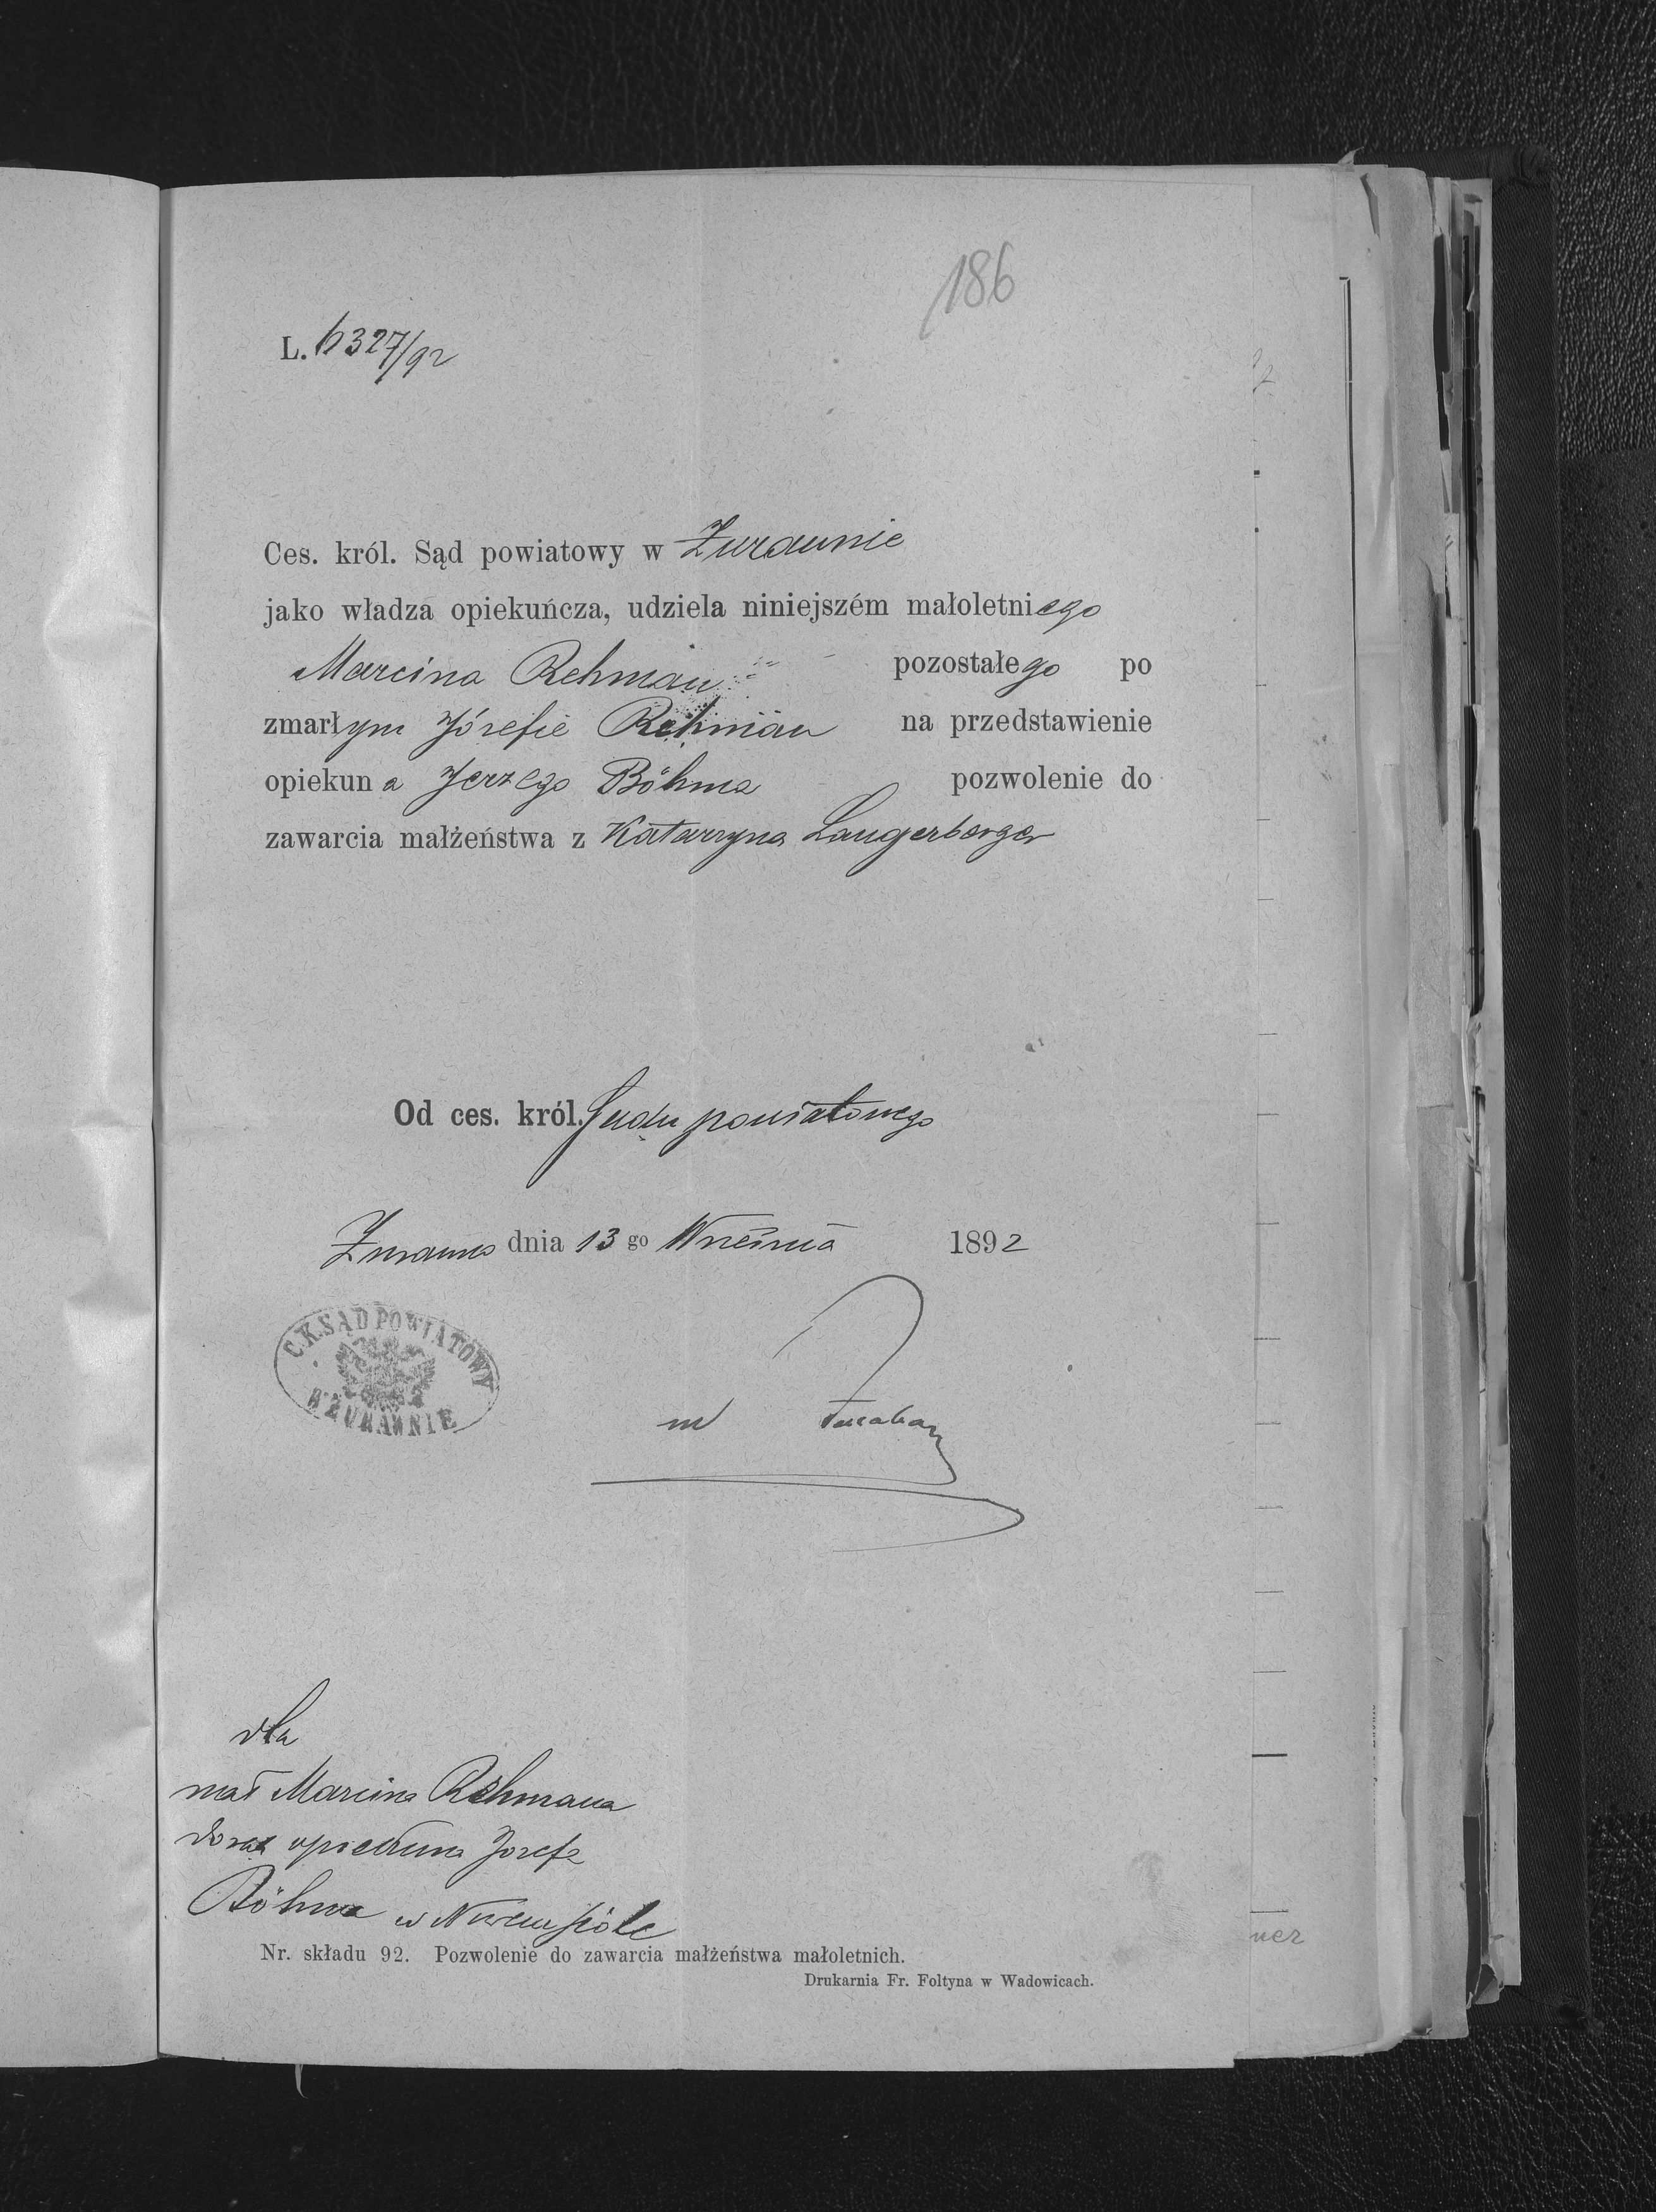 186
L. 6327/92
Ces. król. Sąd powiatowy w Żurawnie
jako władza opiekuńcza, udziela niniejszém małoletniego
Marcina Rehman pozostałego po
zmarłym Józefie Rehman na przedstawienie
opiekuna Jerzego Böhma pozwolenie do
zawarcia małżeństwa z Katarzyną Laugerberger
Od ces. król. Sądu powiatowego
Żurawno dnia 13 go Września 1892
C. K. SĄD POWIATOWY
W ŻURAWNIE
dla
mał Marcina Rehmana
do rąk opiekuna Józefa
Böhma w Nowem siole
Nr. składu 92. Pozwolenie do zawarcia małżeństwa małoletnich.
Drukarnia Fr. Foltyna w Wadowicach.